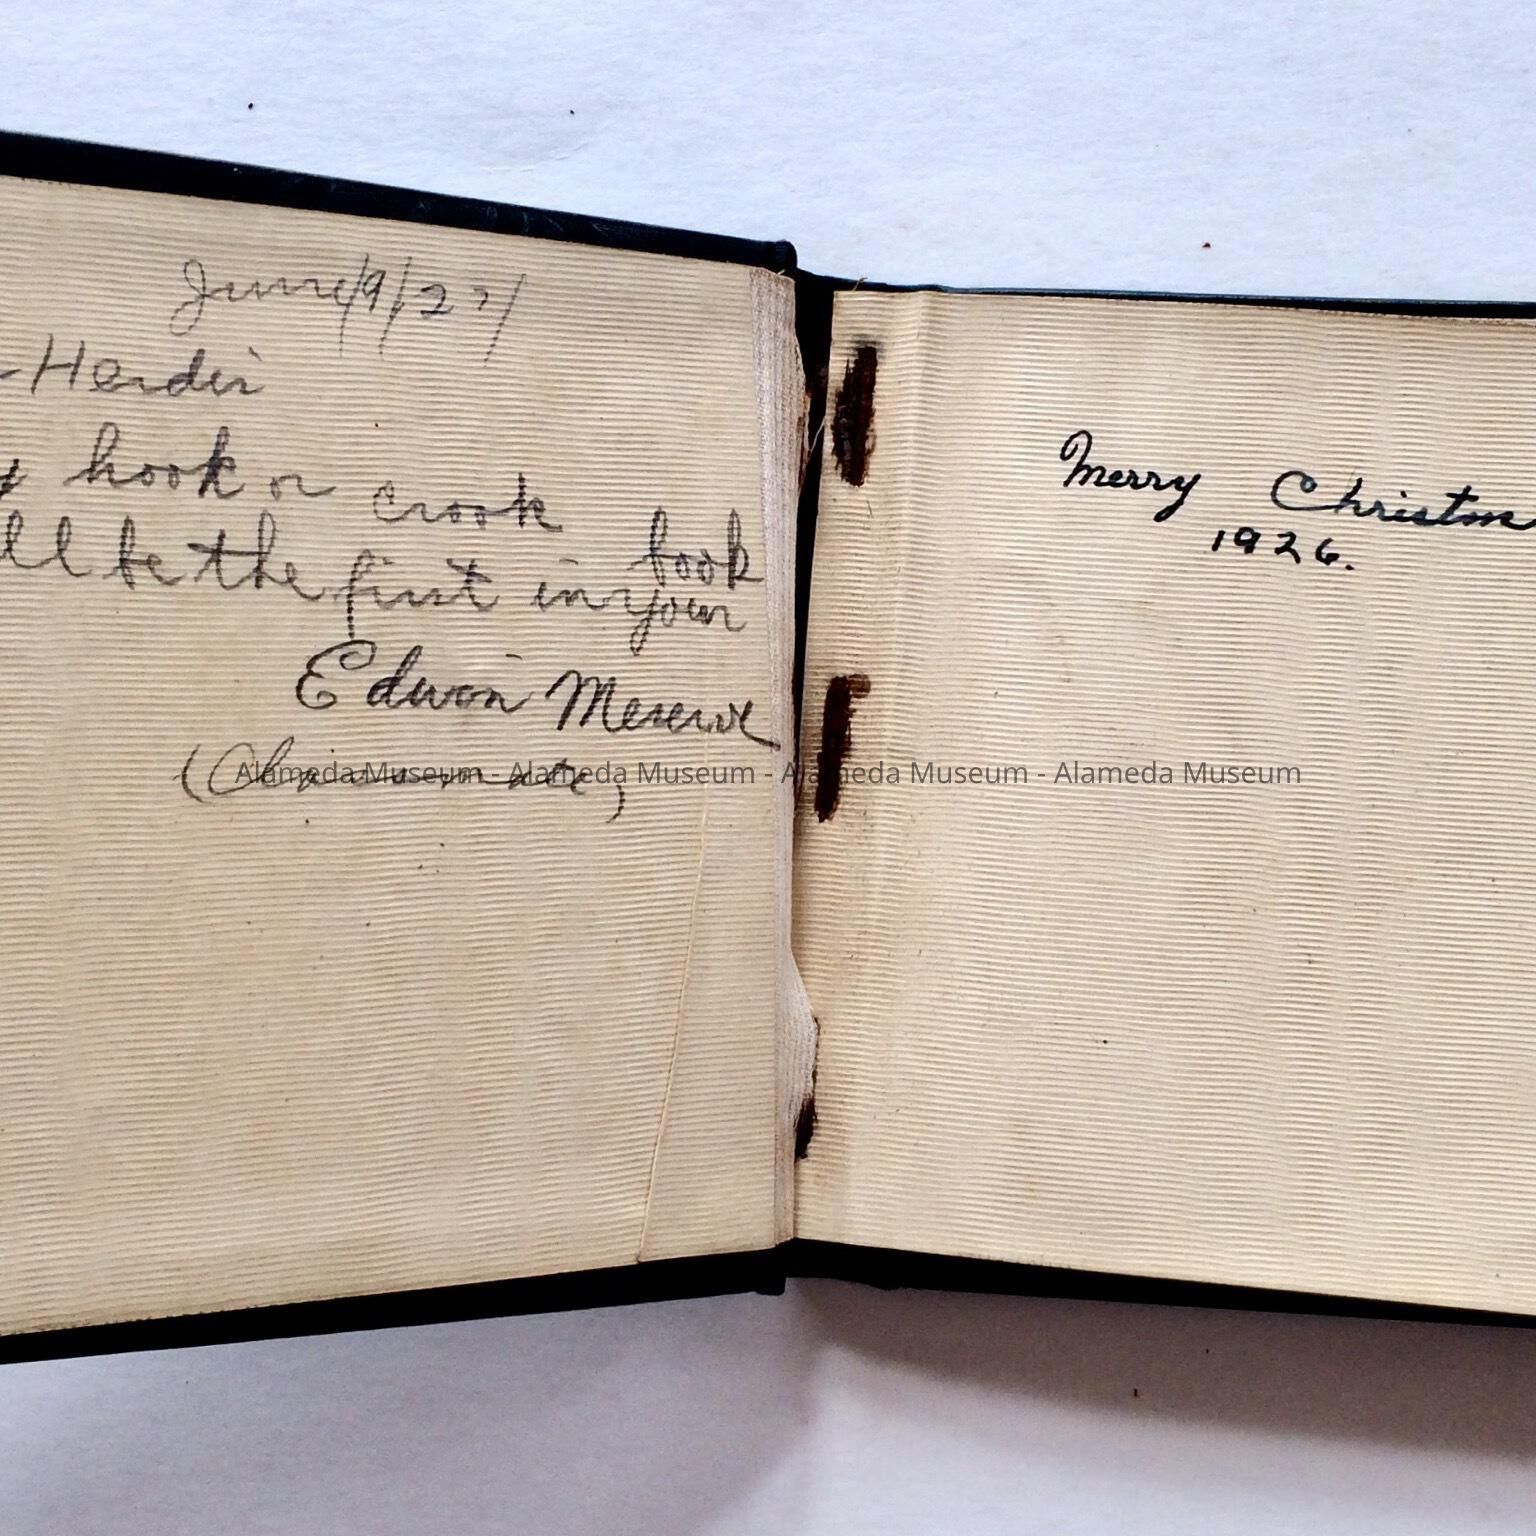 June/9/27/
hook or crook
ll be the first in your book
Edwin Meserve
(Classmate)
Merry Christm
1926.
Alameda Museum - Alameda Museum - Alameda Museum - Alameda Museum